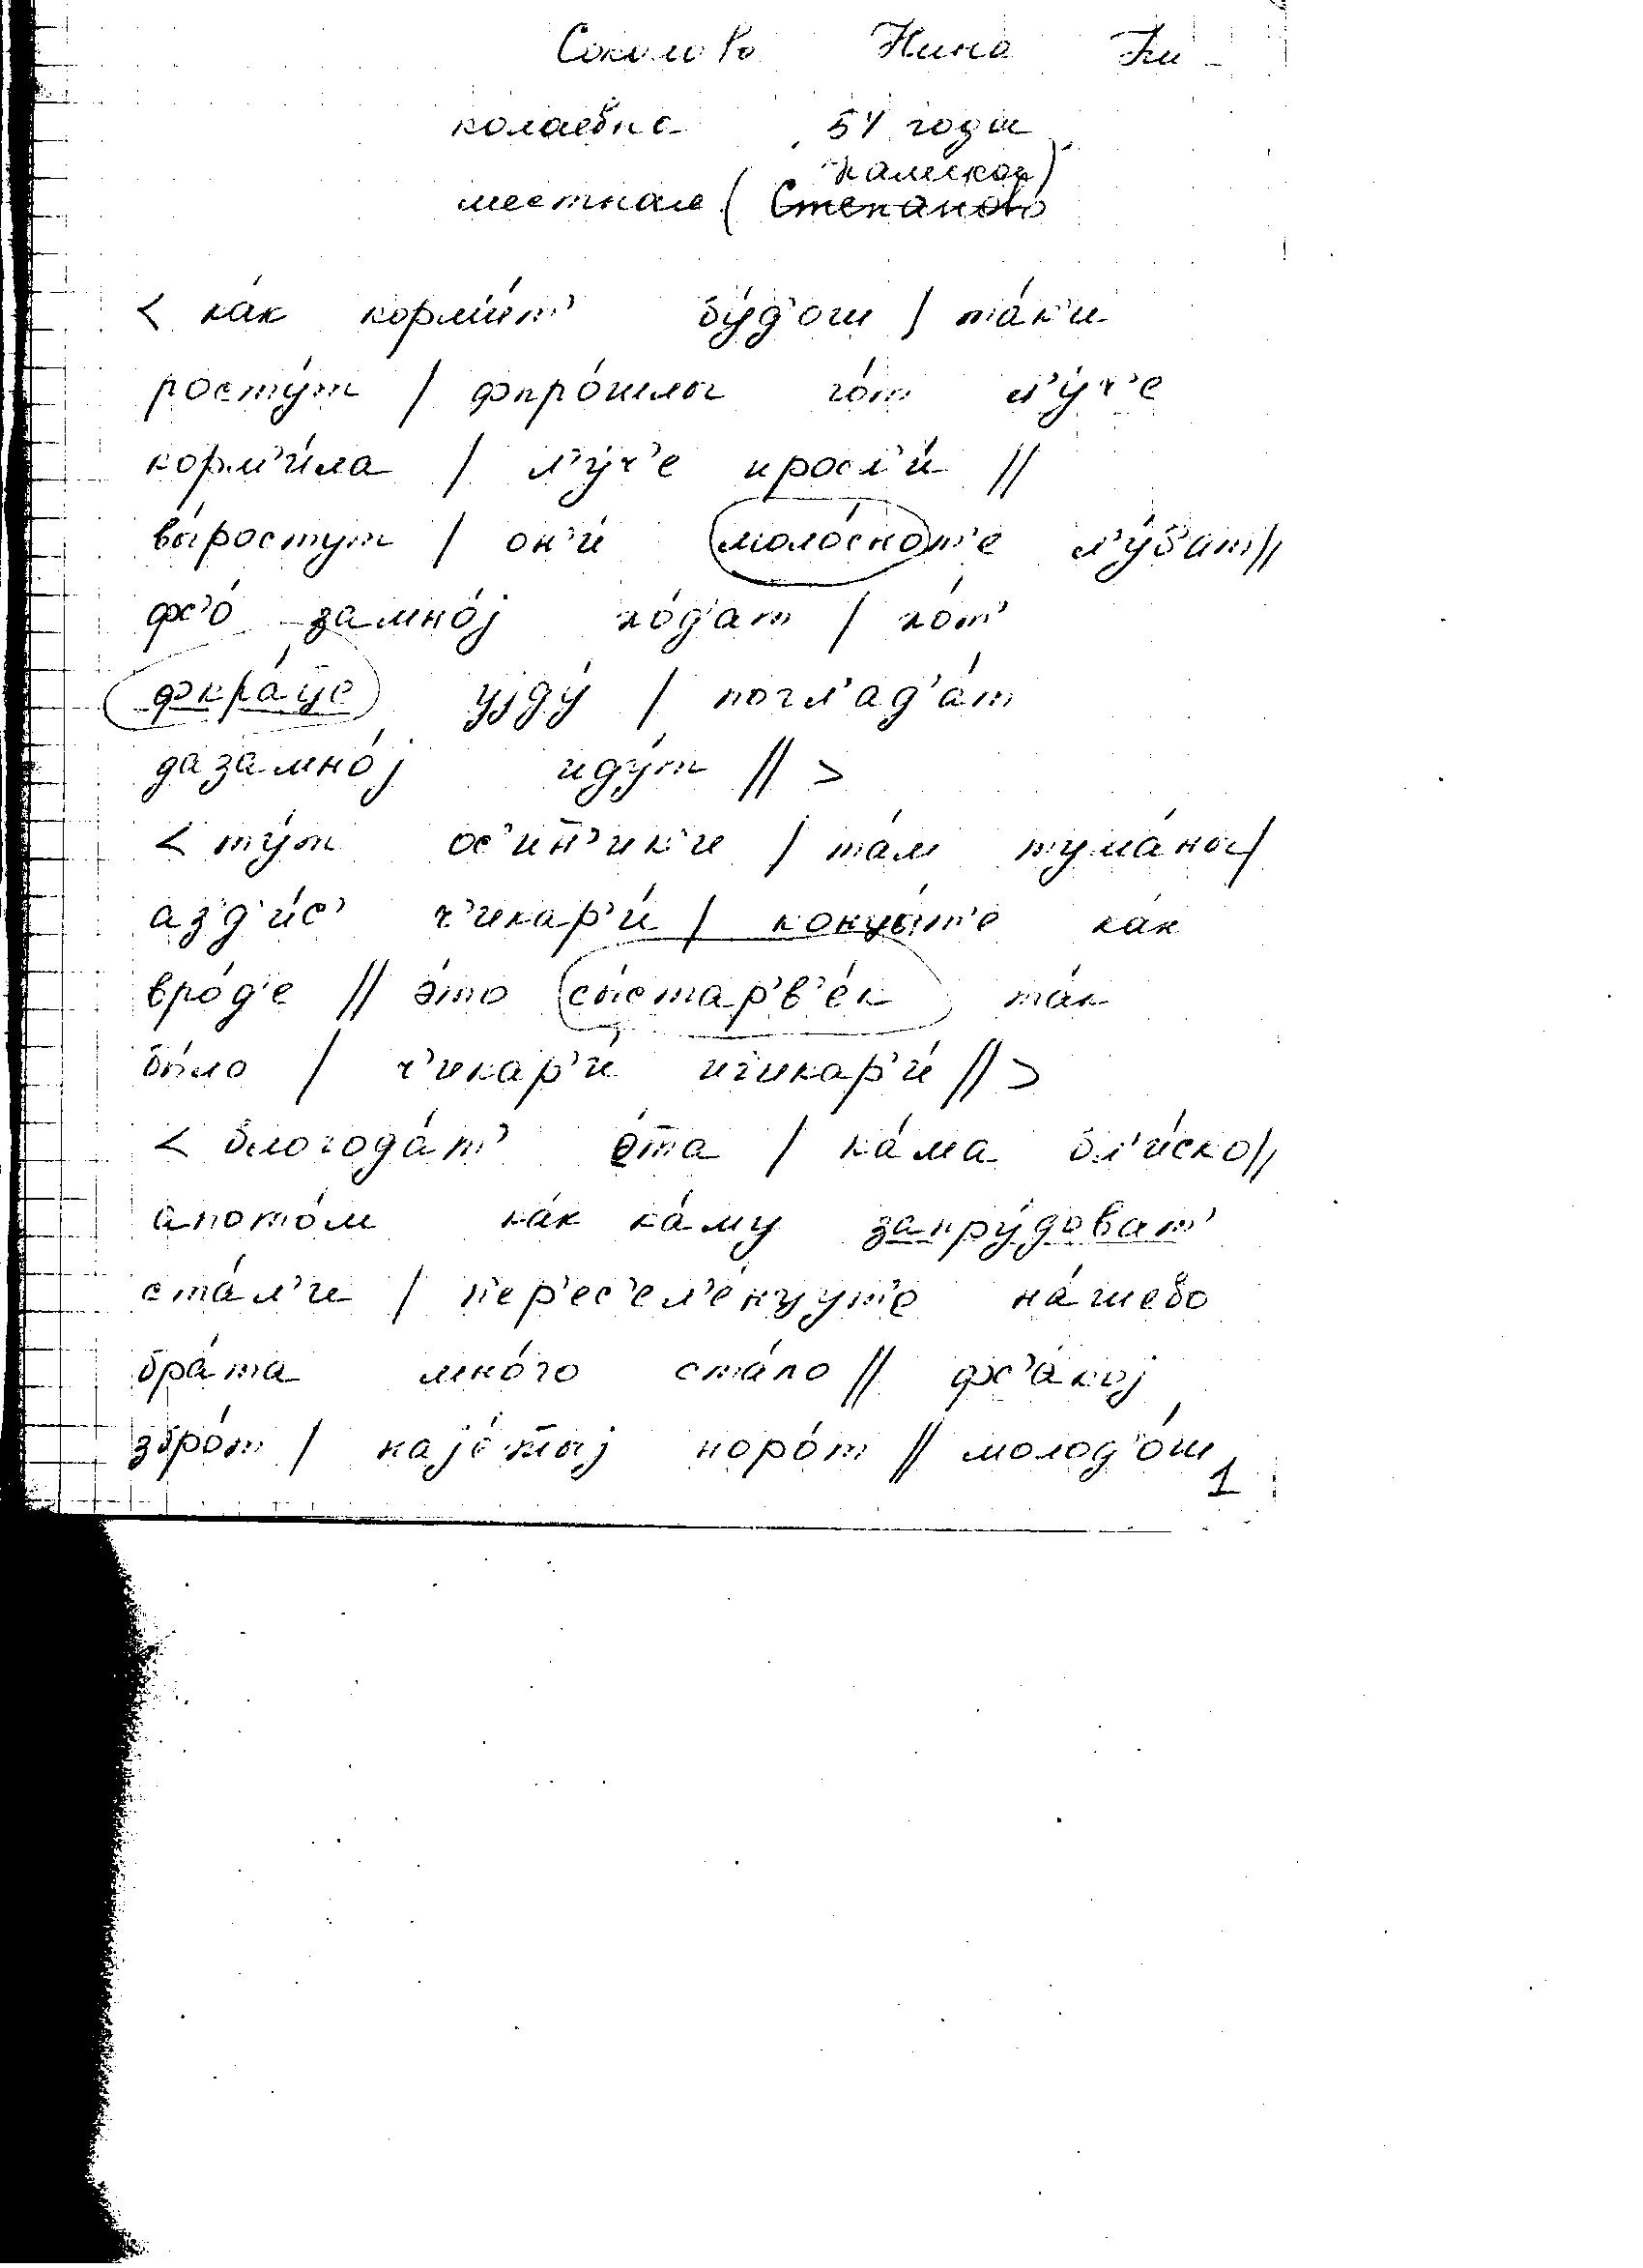 Соколова Нина Ни-
колаевна, 54 года
камская)
местная (Степаново
< ка́к корм'и́т' бу́д'ош / та́к'и
росту́т / фпро́шлы го́т л'у́ч'е
корм'и́ла / л'у́ч'е иросл'и́ //
вы́ростут / он'и́ моло́снот'е л'у́б'ат //
фс'о́ замно́ј хо́д'ат / хо́т'
фкра́йе уjду́ / погл'ад'а́т
дазамно́ј иду́т // >
< ту́т ос'и́н'ик'и / та́м тума́ны /
аз'д'и́с' ч'икар'и́ / концы́т'е ка́к
вро́д'е // э́то сы́старв'е́к та́к
бы́ло / ч'икар'и́ ич'икар'и́ // >
< благода́т' э́та / ка́ма бл'и́ско //
апото́м ка́к ка́му запру́доват'
ста́л'и / п'ер'ес'ел'е́нцут'е на́шево
бра́та мно́го ста́ло // фс'а́кој
збро́т / каjе́тыј норо́т // молод'о́ш
1